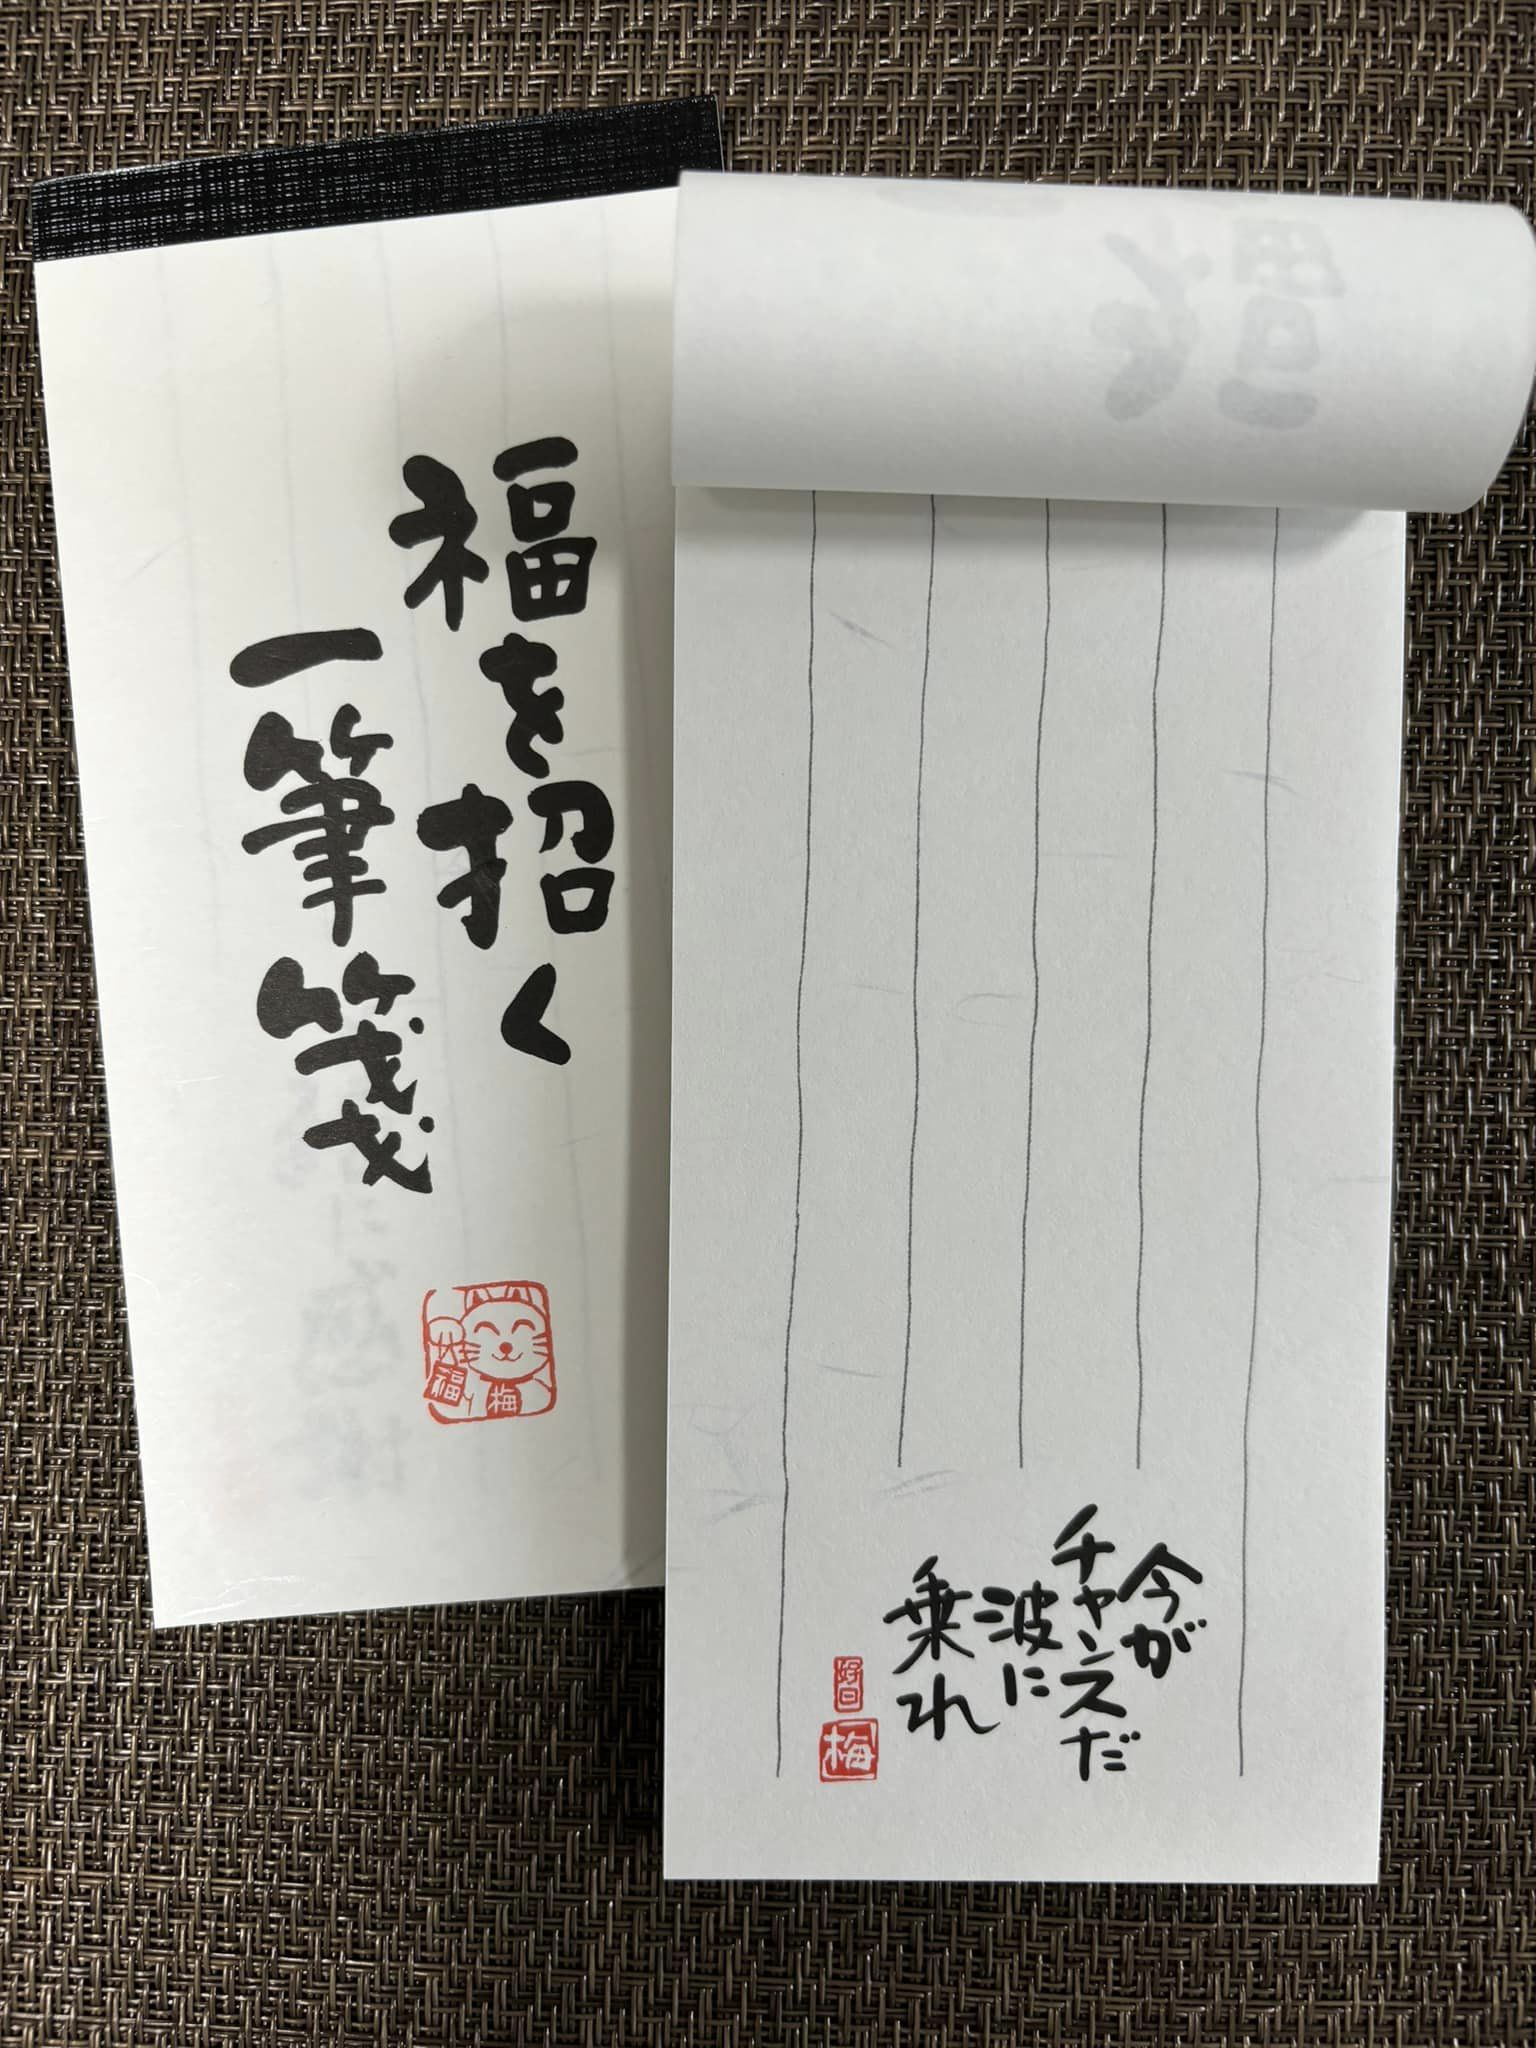 福を招く
一筆箋
福
梅
今が
チャンスだ
波に
乗れ
好日
梅